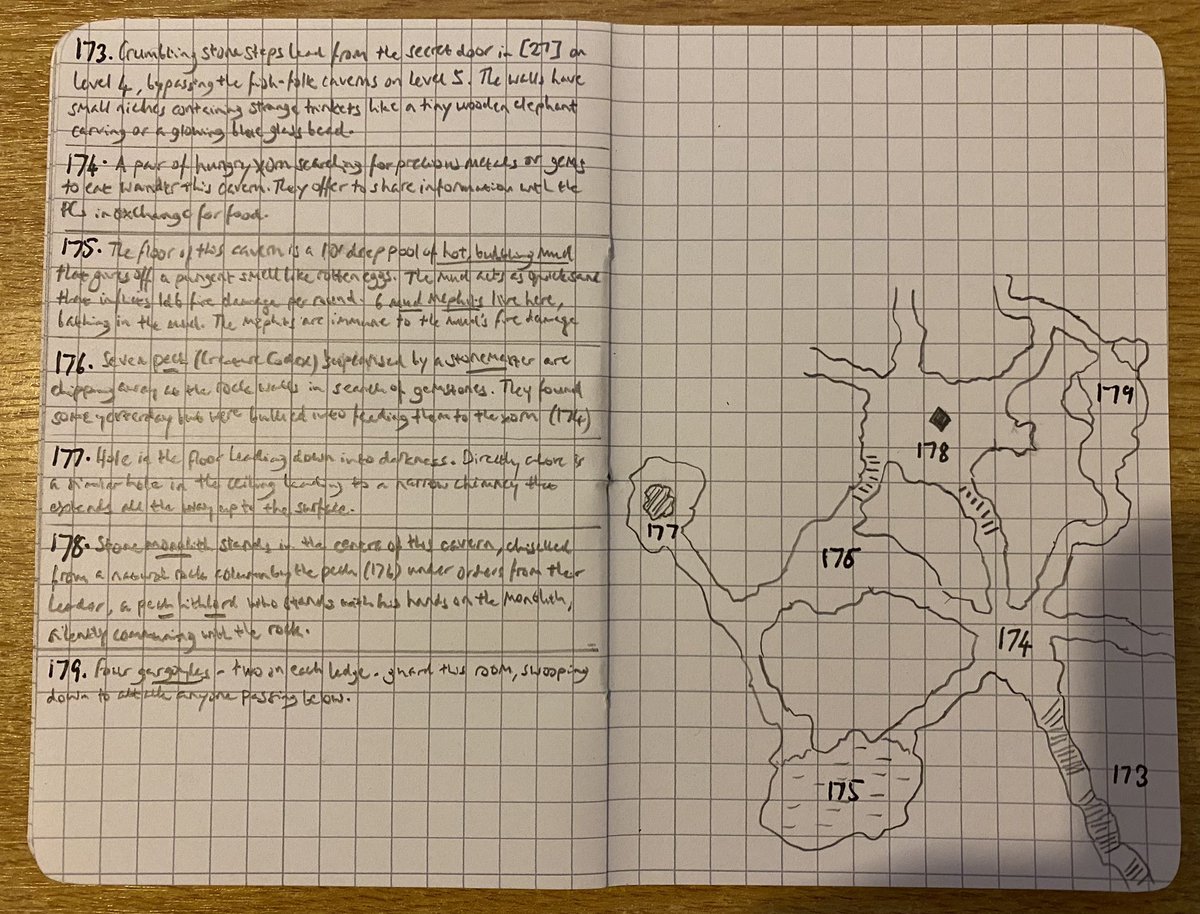 173. Crumbling stone steps lead from the secret door in [27] on
Level 4, bypassing the fish-folk caverns on Level 5. The walls have
small niches containing strange trinkets like a tiny wooden elephant
carving or a glowing blue glass bead.
174. A pair of hungry xorn searching for precious metals or gems
to eat wander this cavern. They offer to share information with the
PCs in exchange for food.
175. The floor of this cavern is a 10' deep pool of hot, bubbling mud
that gives off a pungent smell like rotten eggs. The mud acts as quicksand
that inflicts 1d6 fire damage per round. 6 mud mephits live here,
bathing in the mud. The mephits are immune to the mud's fire damage
176. Seven pech (Creature Codex) supervised by a stonemaster are
chipping away at the rock walls in search of gemstones. They found
some yesterday but were bullied into feeding them to the xorn (174)
177. Hole in the floor leading down into darkness. Directly above is
a similar hole in the ceiling leading to a narrow chimney that
extends all the way up to the surface.
178. Stone monolith stands in the centre of this cavern, chiselled
from a natural rock column by the pech (176) under orders from their
leader, a pech lithlord who stands with his hands on the monolith,
silently communing with the rock.
179. Four gargoyles - two on each ledge - guard this room, swooping
down to attack anyone passing below.
179
178
177
176
174
173
175